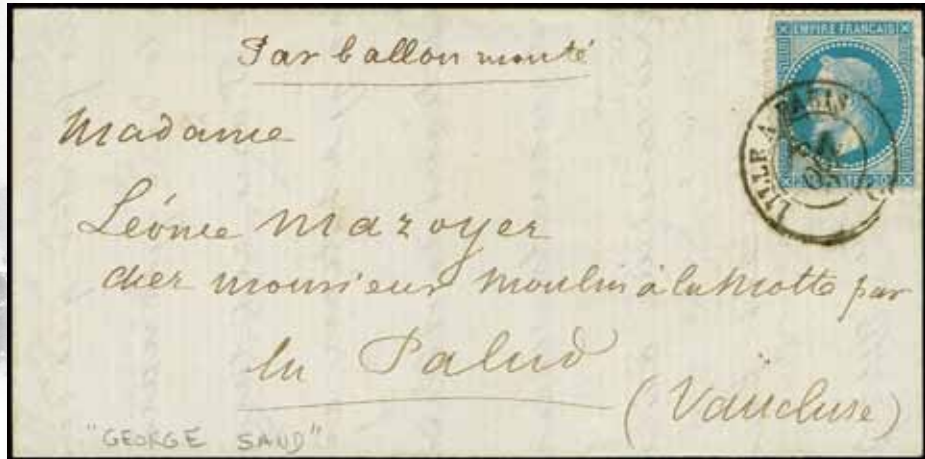 Par ballon monté
EMPIRE FRANÇAIS
Madame
LILLE A PARIS
Léonie Mazoyer
chez monsieur Moulin à la Motte par
la Palud
(Vaucluse)
"GEORGE SAND"